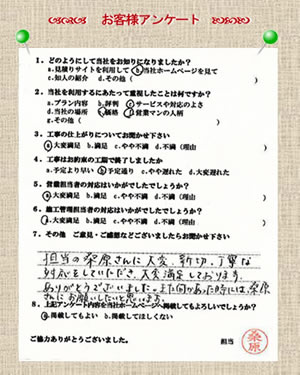 お客様アンケート
1. どのようにして当社をお知りになりましたか?
a.見積りサイトを利用して b.当社ホームページを見て
c.知人の紹介 d.その他( )
2. 当社を利用するにあたって重視したことは何ですか?
a.プラン内容 b.評判 c.サービスや対応のよさ
d.当社の場所 e.価格 f.営業マンの人柄
g.その他( )
3. 工事の仕上がりについてお聞かせ下さい
a.大変満足 b.満足 c.やや不満 d.不満(理由 )
4. 工事はお約束の工期で終了しましたか
a.予定より早い b.予定通り c.やや遅れた d.大変遅れた
5. 営業担当者の対応はいかがでしたでしょうか?
a.大変満足 b.満足 c.やや不満 d.不満(理由 )
6. 施工管理担当者の対応はいかがでしたでしょうか?
a.大変満足 b.満足 c.やや不満 d.不満(理由 )
7. その他 ご意見・ご感想などございましたらお聞かせ下さい
担当の桑原さんに大変、親切、丁寧な
対応をしていただき、大変満足しております。
ありがとうございました。また何かあった時には、桑原
さんにお願いしたいと思います。
8. 上記アンケート内容を当社ホームページへ掲載してもよろしいでしょうか?
a.掲載してもよい b.掲載してほしくない
ご協力ありがとうございました。 担当 桑原